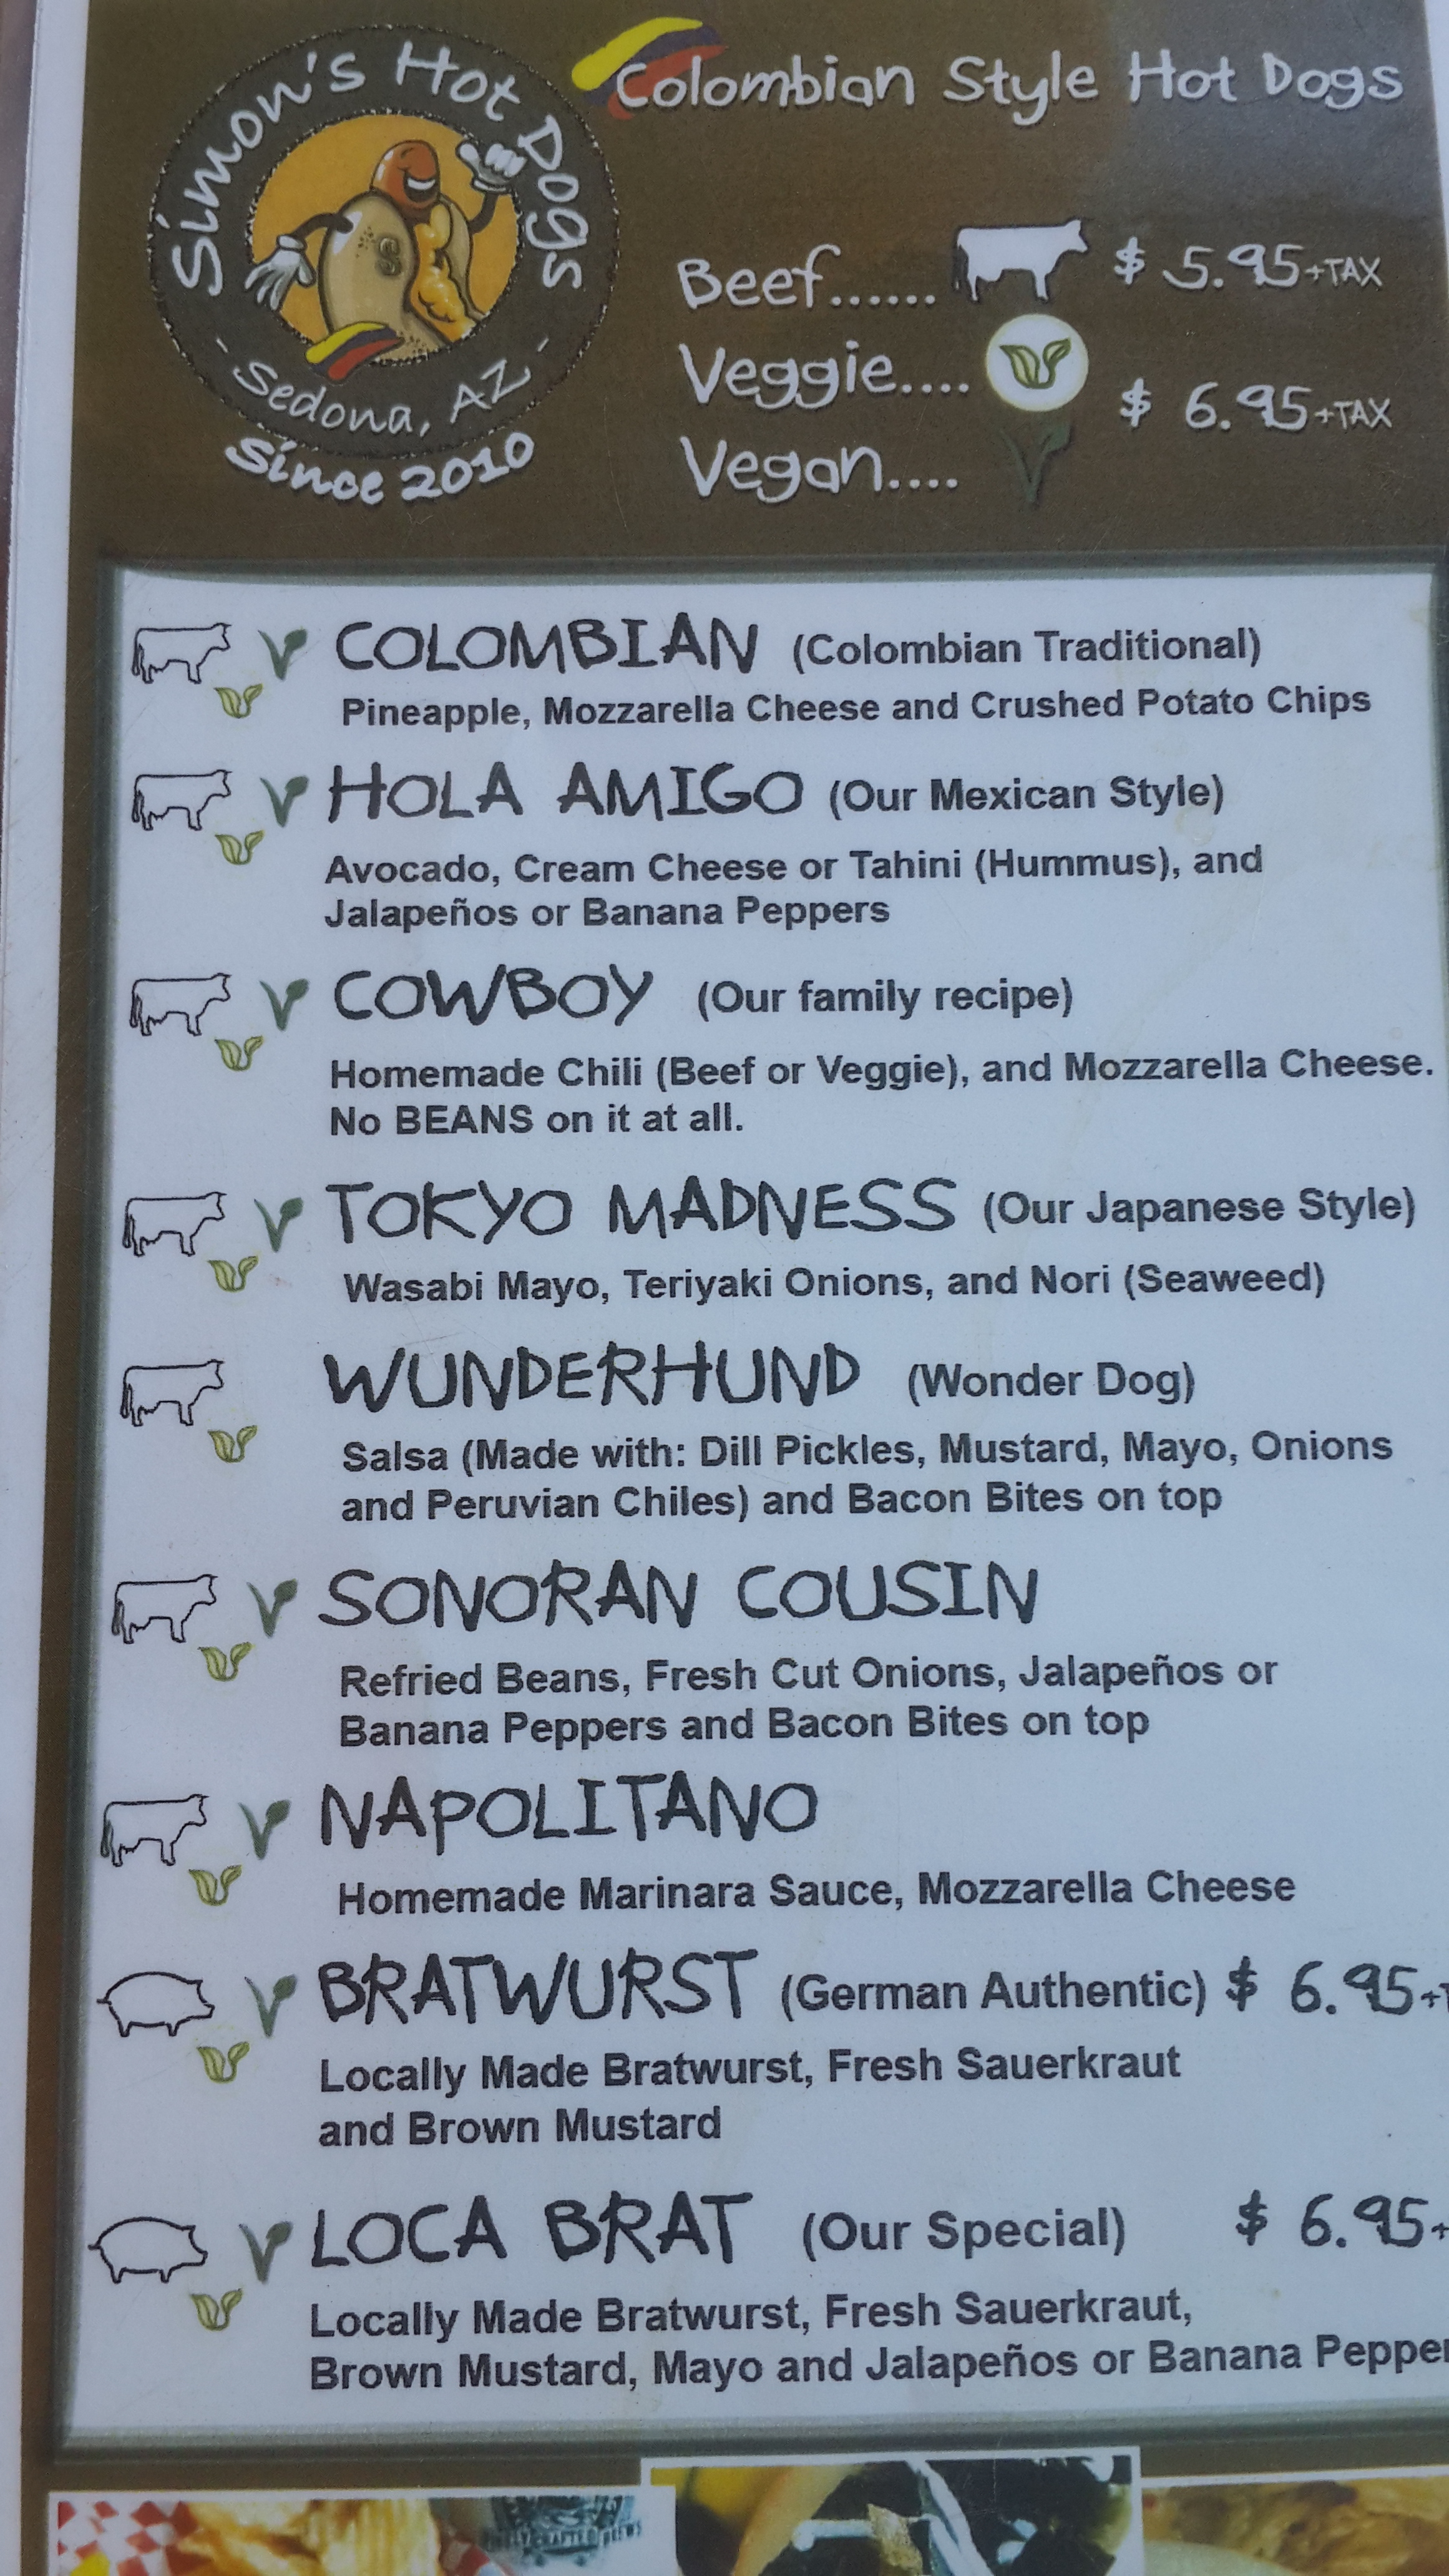 Simon's Hot Dogs
S
- Sedona, AZ -
Since 2010
Colombian Style Hot Dogs
Beef...... $ 5.95+TAX
Veggie....
$ 6.95+TAX
Vegan....
COLOMBIAN (Colombian Traditional)
Pineapple, Mozzarella Cheese and Crushed Potato Chips
HOLA AMIGO (Our Mexican Style)
Avocado, Cream Cheese or Tahini (Hummus), and
Jalapeños or Banana Peppers
COWBOY (Our family recipe)
Homemade Chili (Beef or Veggie), and Mozzarella Cheese.
No BEANS on it at all.
TOKYO MADNESS (Our Japanese Style)
Wasabi Mayo, Teriyaki Onions, and Nori (Seaweed)
WUNDERHUND (Wonder Dog)
Salsa (Made with: Dill Pickles, Mustard, Mayo, Onions
and Peruvian Chiles) and Bacon Bites on top
SONORAN COUSIN
Refried Beans, Fresh Cut Onions, Jalapeños or
Banana Peppers and Bacon Bites on top
NAPOLITANO
Homemade Marinara Sauce, Mozzarella Cheese
BRATWURST (German Authentic) $ 6.95+
Locally Made Bratwurst, Fresh Sauerkraut
and Brown Mustard
LOCA BRAT (Our Special) $ 6.95+
Locally Made Bratwurst, Fresh Sauerkraut,
Brown Mustard, Mayo and Jalapeños or Banana Pepper